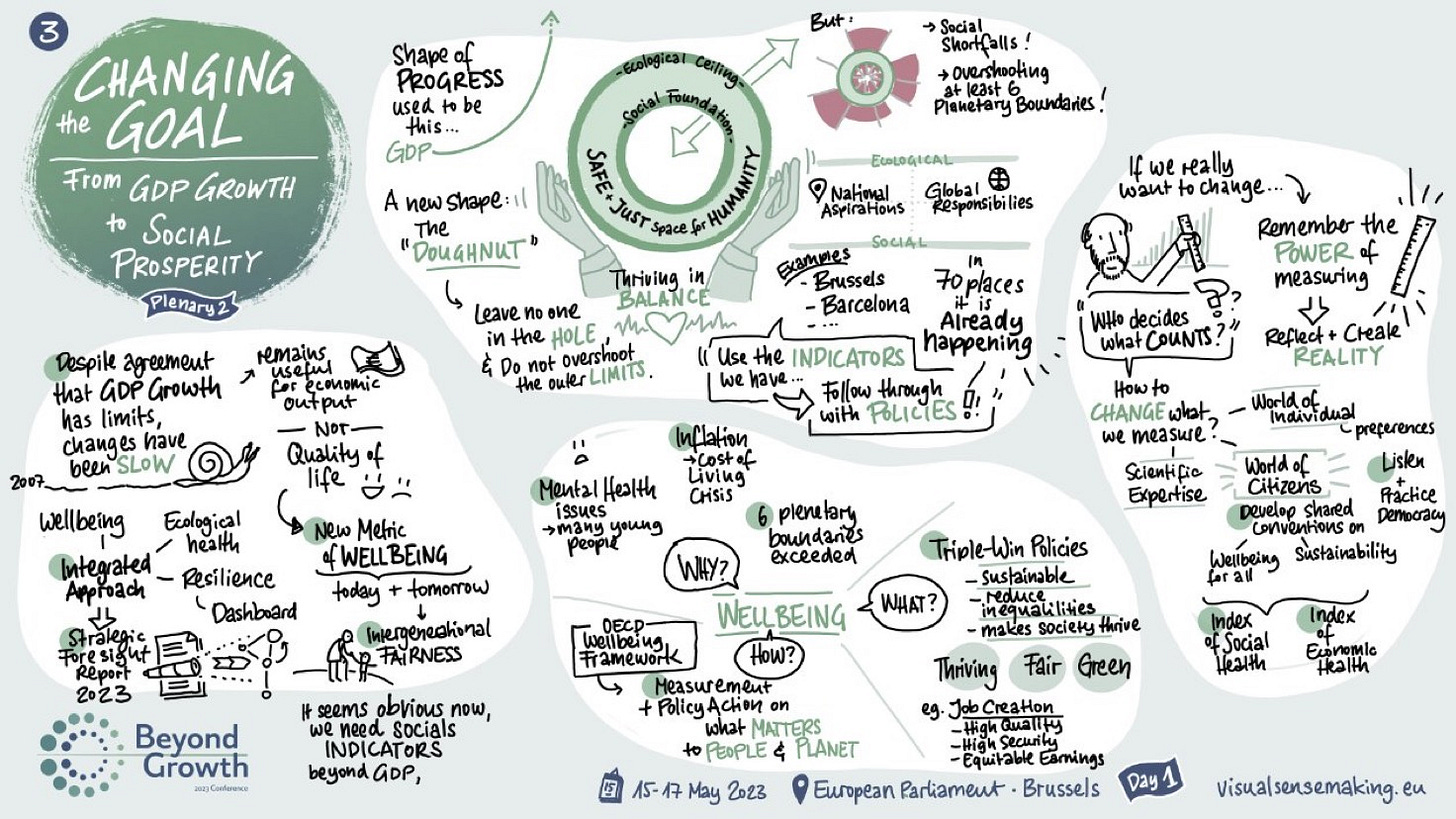 3
CHANGING
the GOAL
From GDP GROWTH
to SOCIAL
PROSPERITY
Plenary 2
Shape of
PROGRESS
used to be
this...
GDP
A new shape:
The
"DOUGHNUT"
Leave no one
in the HOLE,
& Do not overshoot
the outer LIMITS.
-Ecological Ceiling-
-Social Foundation-
SAFE + JUST space for HUMANITY
Thriving in
BALANCE
But:
→ Social
Shortfalls!
→ Overshooting
at least 6
Planetary Boundaries!
ECOLOGICAL
National
Aspirations
Global
Responsibilies
SOCIAL
Examples
- Brussels
- Barcelona
- ...
in
70 places
it is
Already
happening
"Use the INDICATORS
we have...
Follow through
with POLICIES!"
If we really
want to change...
Remember the
POWER of
measuring
Reflect + Create
REALITY
"Who decides
what COUNTS?"
How to
CHANGE what
we measure?
Scientific
Expertise
World of
Individual
preferences
World of
Citizens
Listen
+
Practice
Democracy
Develop shared
conventions on
Wellbeing
for all
Sustainability
Index
of Social
Health
Index
of
Economic
Health
Despite agreement
that GDP Growth
has limits,
changes have
been SLOW
2007
remains
useful
for economic
output
- NOT -
Quality of
life
New Metric
of WELLBEING
today + tomorrow
Intergenerational
FAIRNESS
Wellbeing
Ecological
health
Integrated
Approach
- Resilience
Dashboard
Strategic
Foresight
Report
2023
It seems obvious now,
we need socials
INDICATORS
beyond GDP,
Mental Health
issues
→ many young
people
Inflation
→ Cost of
Living
Crisis
6 planetary
boundaries
exceeded
WHY?
WELLBEING
WHAT?
HOW?
OECD
Wellbeing
Framework
Measurement
+ Policy Action on
what MATTERS
to PEOPLE & PLANET
Triple-Win Policies
- sustainable
- reduce
inequalilities
- makes society thrive
Thriving Fair Green
eg. Job Creation
- High Quality
- High Security
- Equitable Earnings
Beyond
Growth
2023 Conference
15
15-17 May 2023
European Parliament · Brussels
Day 1
visualsensemaking.eu